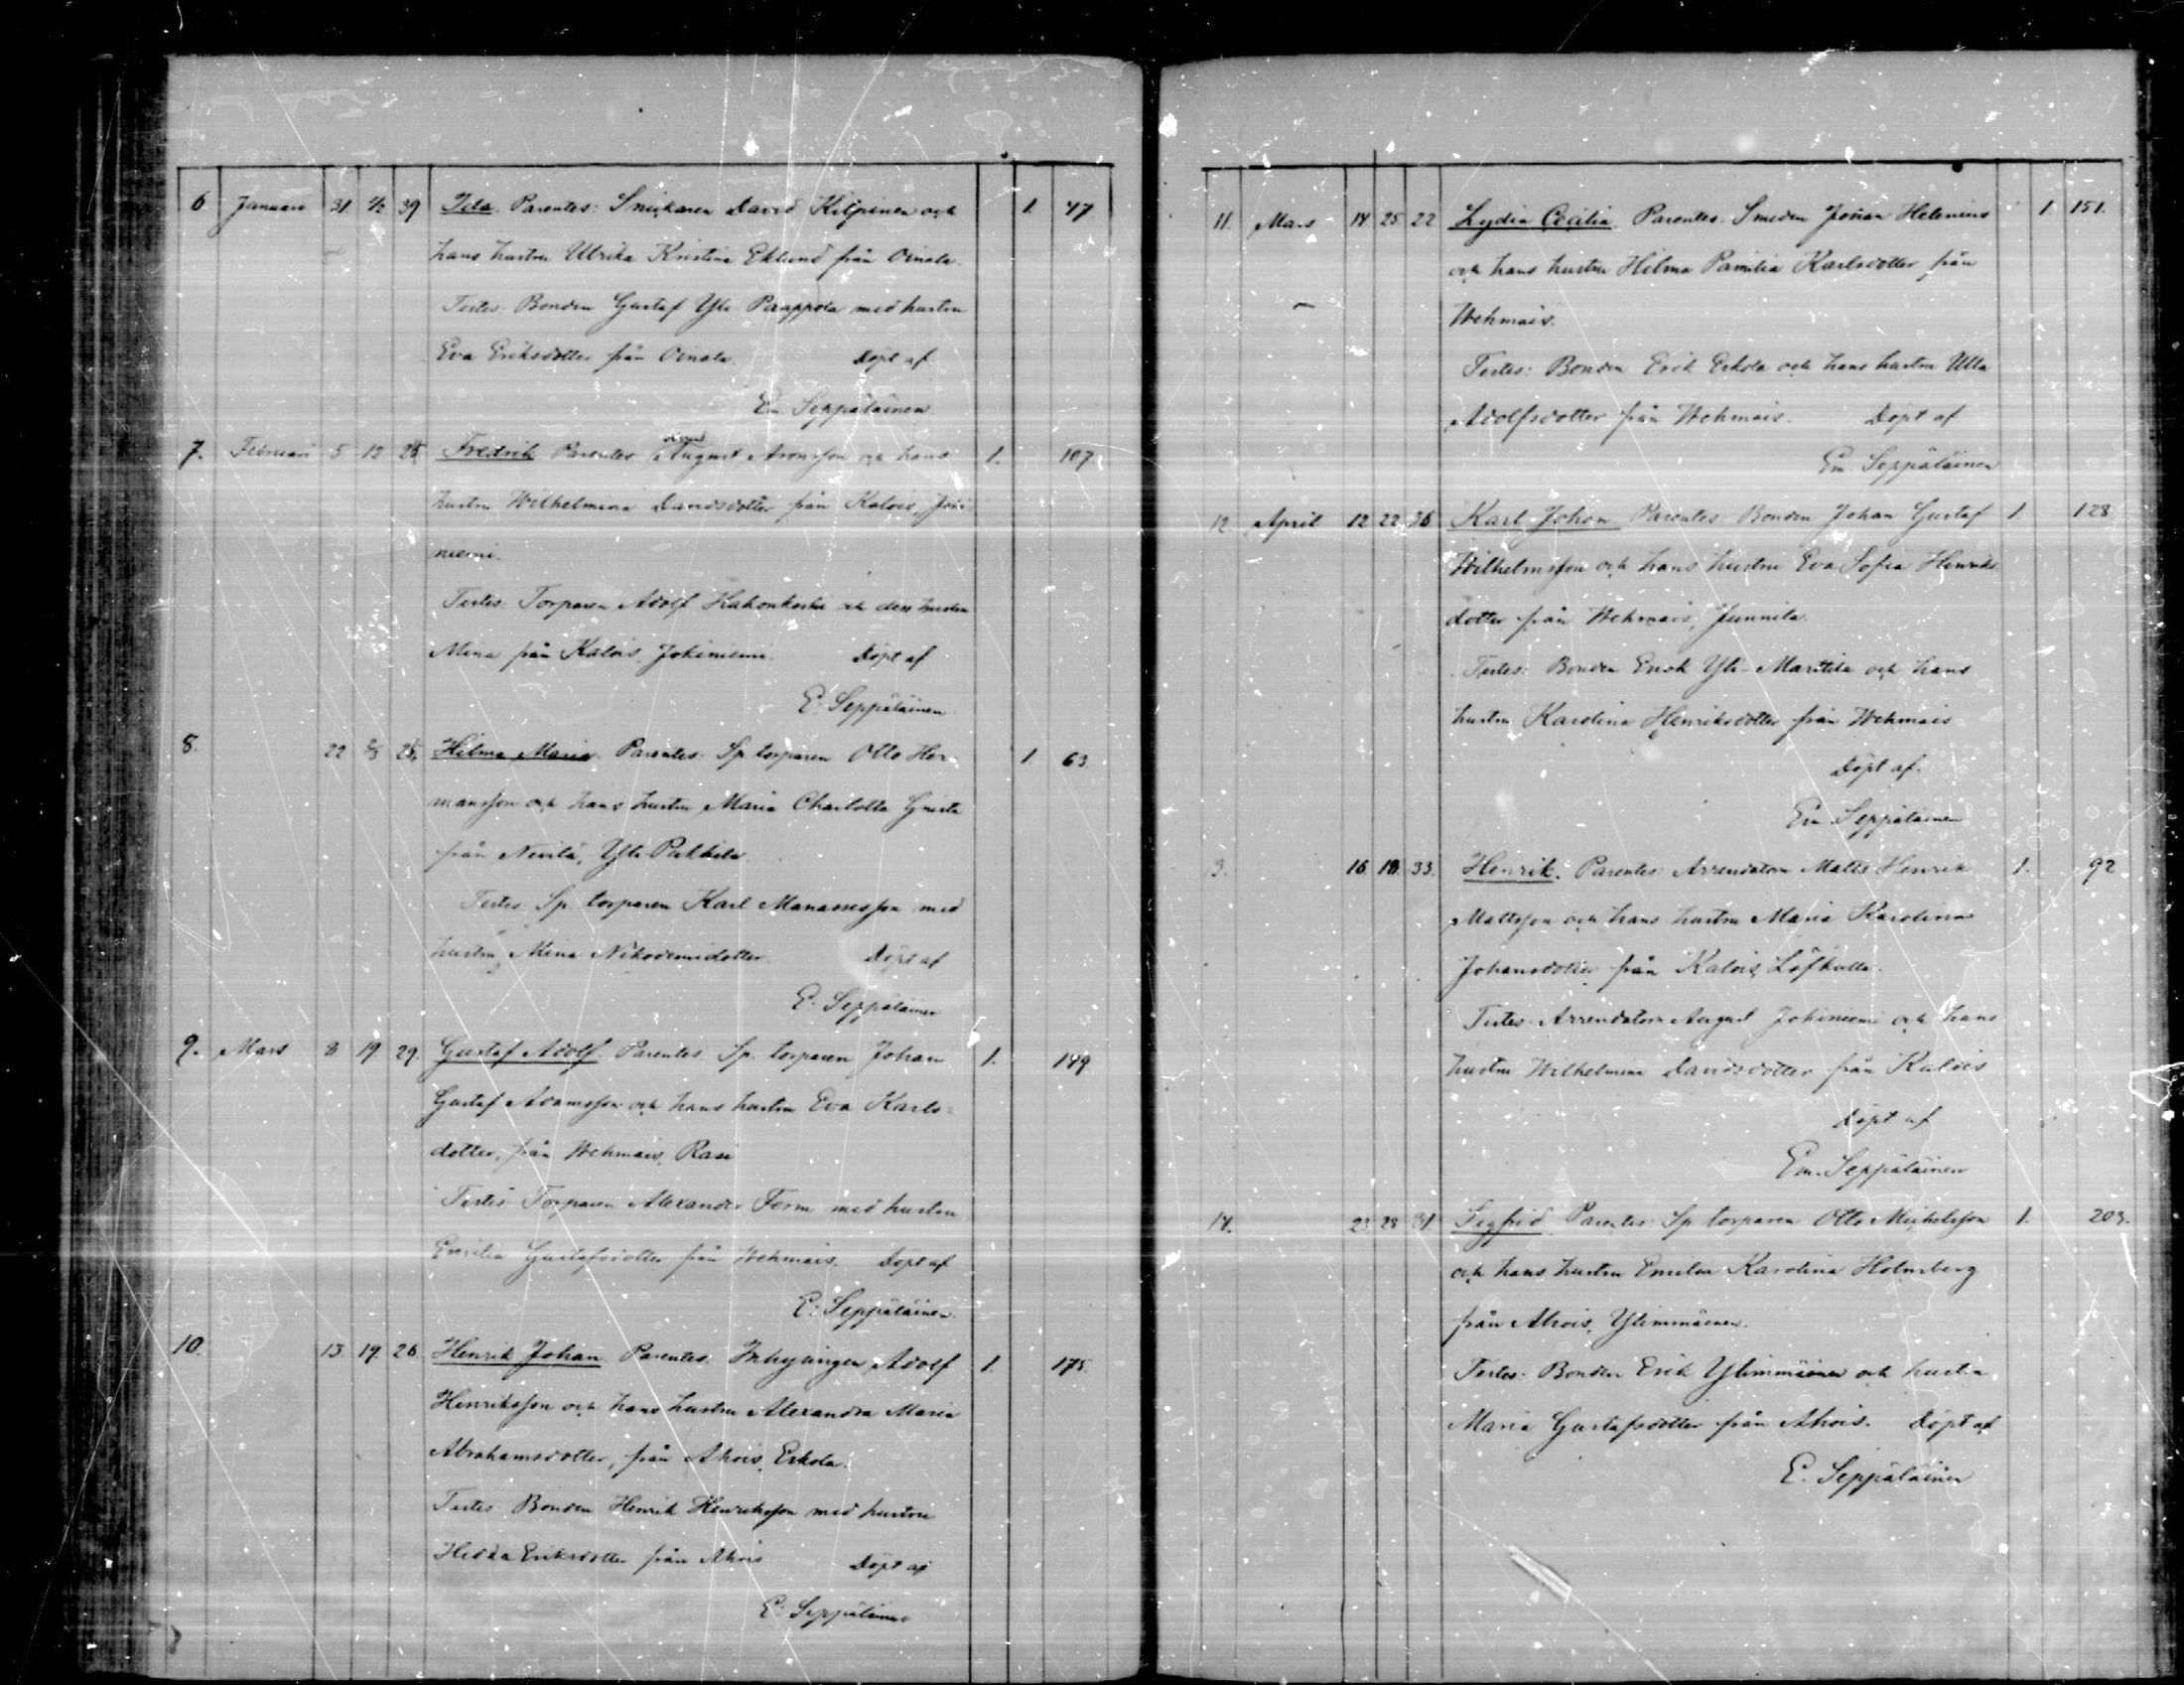 6 Januari 31 1/2 39 Ida. Parentes: Snickaren David Kilpinen och 1. 47
hans hustru Ulrika Kristina Eklund från Oinala.
Testes: Bonden Gustaf Yli Paappola med hustru
Eva Eriksdotter från Oinala. Döpt af
Em Seppäläinen
7. Februari 5 12 25 Fredrik Parentes August Aronsson och hans 1. 107
hustru Wilhelmina Davidsdotter från Kalois, Joki
niemi.
Testes: Torparen Adolf Hakonkoski och dess hustru
Mina från Kalois, Jokiniemi. Döpt af
E. Seppäläinen
8. 22 25 Hilma Maria. Parentes: Sp. torparen Otto Her- 1. 63
mansson och hans hustru Maria Charlotta Gneista
från Yli Pukkila
Testes Sp. torparen Karl Manassesson med
hustru Mina Nikodemidotter. Döpt af
E. Seppäläinen
9. Mars 8 19 29. Gustaf Adolf Parentes Sp. torparen Johan 1. 149
Gustaf Adamsson och hans hustru Eva Karls=
dotter, från Wehmais, Rasi
Testes Torparen Alexander Form med hustru
Emilia Gustafsdotter från Wehmais. Döpt af
E. Seppäläinen.
10. 13. 19. 26 Henrik Johan Parentes: Inhysingen Adolf 1. 175.
Henriksson och hans hustru Alexandra Maria
Abrahamsdotter, från Ahois, Erkola.
Testes: Bonden Henrik Henriksson med hustru
Hedda Eriksdotter från Ahois Döpt af
E. Seppäläinen
11. Mars 14 25 22 Lydia Cecilia Parentes. Smeden Johan Helenius 1. 151.
och hans hustru Hilma Pamilia Karlsdotter från
Wehmais.
Testes: Bonden Erik Erkola och hans hustru Ulla
Adolfsdotter från Wehmais. Döpt af
Em Seppäläinen
12. April 12 22 36 Karl Johan Parentes: Bonden Johan Gustaf 1. 128
Wilhelmsson och hans hustru Eva Sofia Henriks
dotter från Wehmais, Junnila.
Testes: Bonden Enok Yli-Marttila och hans
hustru Karolina Henriksdotter från Wehmais
Döpt af.
Em Seppäläinen
3. 16. 18. 33. Henrik. Parentes: Arrendatorn Matts Henrik 1. 92
Mattsson och hans hustru Maria Karolina
Johansdotter från Kalois, Löfkulla.
Testes. Arrendatorn August Jokiniemi och hans
hustru Wilhelmina Davidsdotter från Kalois
Döpt af
Em. Seppäläinen
14. 23 28 31 Segfrid Parentes: Sp torparen Otto Mickelsson 1. 203.
och hans hustru Emilia Karolina Holmberg
från Ahois, Ylimmäinen.
Testes. Bonden Erik Ylimmäinen och hustru
Maria Gustafsdotter från Ahois. Döpt af
E. Seppäläinen